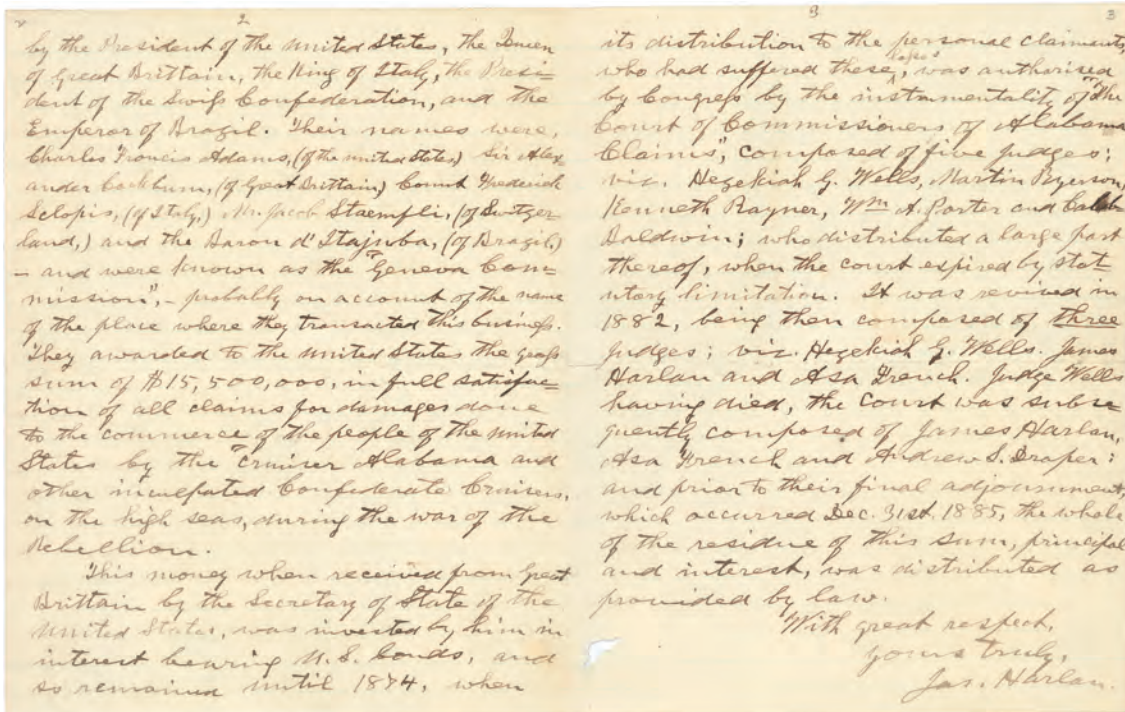 2
by the President of the United States, the Queen
of Great Brittain, the King of Italy, the Presi=
dent of the Swiss Confederation, and the
Emperor of Brazil. Their names were,
Charles Francis Adams, (of the United States,) Sir Alex
ander Cockburn, (of Great Brittain,) Count Frederick
Sclopis, (of Italy,) Mr. Jacob Staempfli, (of Switzer=
land,) and the Baron d' Itajuba, (of Brazil,)
– and were known as the "Geneva Com=
mission", – probably on account of the name
of the place where they transacted this business.
They awarded to the United States the gross
sum of $15,500,000, in full satisfac=
tion of all claims for damages done
to the commerce of the people of the United
States by the "Cruiser Alabama and
other inculpated Confederate Cruisers,
on the high seas, during the war of the
Rebellion.
This money when received from Great
Brittain by the Secretary of State of the
United States, was invested by him in
interest bearing U.S. bonds, and
so remained until 1874, when
3
3
its distribution to the personal claiments,
who had suffered these losses, was authorised
by Congress by the instrumentality of "The
Court of Commissioners of Alabama
Claims", composed of five judges;
viz. Hezekiah G. Wells, Martin Ryerson,
Kenneth Rayner, Wm A. Porter and Caleb
Baldwin; who distributed a large part
thereof, when the court expired by stat=
utory limitation. It was revived in
1882, being then composed of three
judges; viz. Hezekiah G. Wells. James
Harlan and Asa French. Judge Wells
having died, the Court was subse=
quently composed of James Harlan,
Asa French and Andrew S. Draper:
and prior to their final adjournment,
which occurred Dec. 31st. 1885, the whole
of the residue of this sum, principal
and interest, was distributed as
provided by law.
With great respect,
yours truly,
Jas. Harlan.